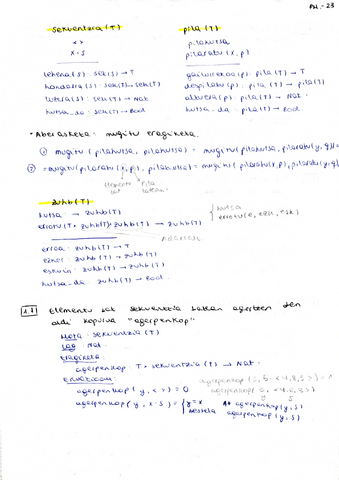 PH.- 23
sekuentzia (T)
< >
x · s
lehena (s): sek(T) → T
hondarra (s): sek(T) → sek(T)
luzera (s): sek(T) → Nat
hutsa_da: sek(T) → Bool
pila (T)
pilahutsa
pilaratu (x, p)
gailurrekoa (p): pila (T) → T
despilatu (p): pila (T) → pila (T)
altuera (p): pila (T) → Nat.
hutsa_da: pila (T) → Bool
Aberasketa: mugitu eragiketa.
① mugitu (pilahutsa, pilahutsa) = mugitu (pilahutsa, pilaratu (y, q)) =
② mugitu (pilaratu (x, p), pilahutsa) = mugitu (pilaratu (x, p), pilaratu (y, q)
elementu bat
pila batean
zuhb (T)
hutsa: → zuhb (T)
errotu (T × zuhb(T) × zuhb(T) → zuhb (T)
hutsa
errotu (e, ezk, esk)
erroa: zuhb (T) → T
ezker: zuhb (T) → zuhb (T)
eskuin: zuhb (T) → zuhb (T)
hutsa_da: zuhb (T) → Bool.
1.7 Elementu bat sekuentzia batean agertzen den
aldi kopurua "agerpenkop"
Mota: sekuentzia (T)
Lag: Nat.
Eragiketa:
agerpenkop: T × sekuentzia (T) → Nat.
Ekuazioak:
agerpenkop (y, < >) = 0
agerpenkop (y, x · s) = { y = x 1 + agerpenkop (y, s)
bestela agerpenkop (y, s)